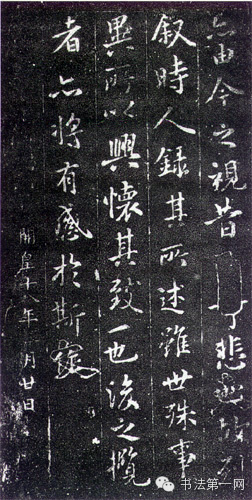 亦由今之視昔悲夫故列
叙時人錄其所述雖世殊事
異所以興懷其致一也後之攬
者亦將有感於斯文
開皇十八年月廿日
书法第一网